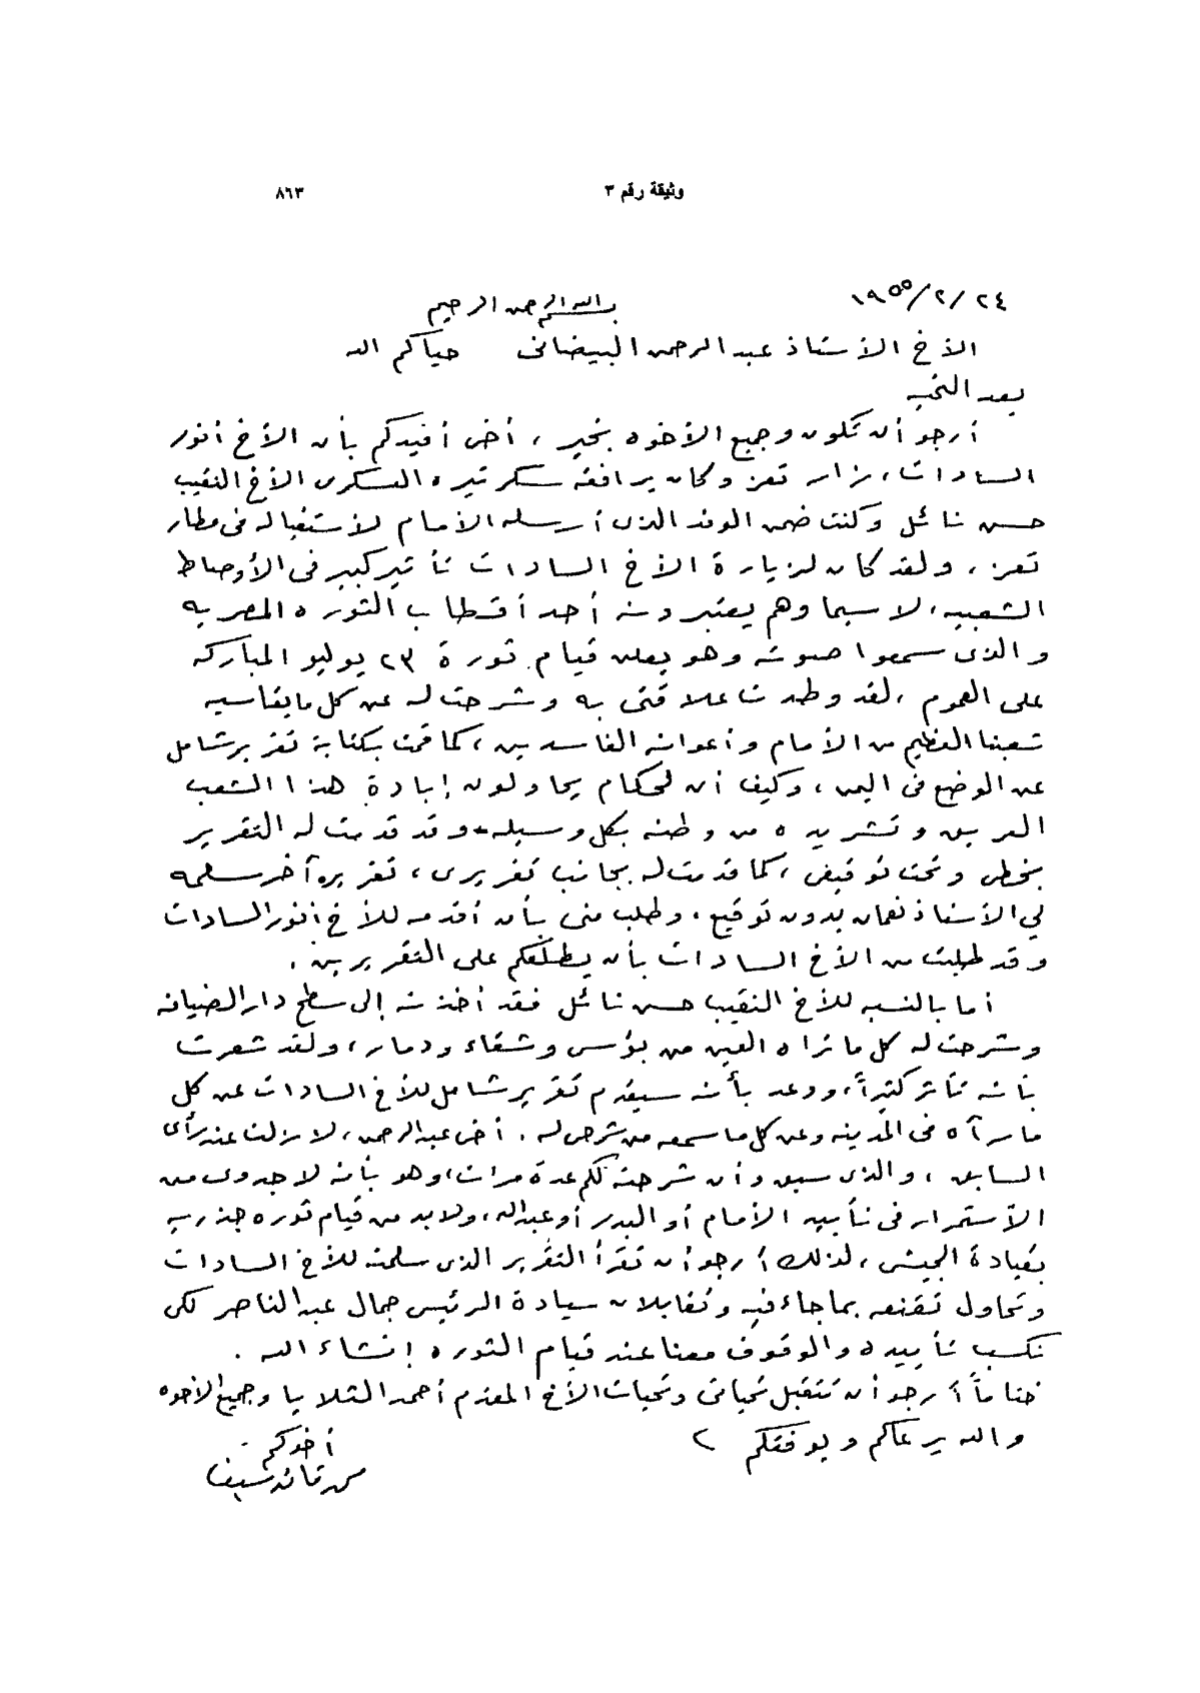 وثيقة رقم ٣
٨٦٣
١٩٥٥/٢/٢٤
بسم الله الرحمن الرحيم
الأخ الأستاذ عبد الرحمن البيضانى حياكم الله
بعد التحيه
أرجو أن تكون وجميع الأخوه بخير ، أخى أفيدكم بأن الأخ أنور
السادات ، زار تعز وكان يرافقه سكرتيره العسكرى الأخ النقيب
حسن نائل وكنت ضمن الوفد الذى أرسله الأمام لأستقباله فى مطار
تعز ، ولقد كان لزيارة الأخ السادات تأثير كبير فى الأوصاط
الشعبيه ، لا سيما وهم يعتبرونه أحد أقطاب الثوره المصريه
والذى سمعوا صوته وهو يعلن قيام ثورة ٢٣ يوليو المباركه
على العموم ، لقد وطدت علاقتى به وشرحت له عن كل ما يقاسيه
شعبنا العظيم من الأمام وأعوانه الفاسدين ، كما قمت بكتابة تقرير شامل
عن الوضع فى اليمن ، وكيف أن الحكام يحاولون إبادة هذا الشعب
العريق وتشريده من وطنه بكل وسيله وقد قدمت له التقرير
بخطى وتحت توقيعى ، كما قدمت له بجانب تقريرى ، تقريره آخر سلمه
لي الأستاذ نعمان بدون توقيع ، وطلب منى بأن أقدمه للأخ أنور السادات
وقد طلبت من الأخ السادات بأن يطلعكم على التقريرين .
أما بالنسبه للأخ النقيب حسن نائل فقد أخذته إلى سطح دار الضيافه
وشرحت له كل ما تراه العين من بؤس وشقاء ودمار ، ولقد شعرت
بأنه تأثر كثيراً ، ووعد بأنه سيقدم تقرير شامل للأخ السادات عن كل
ما رآه فى المدينه وعن كل ما سمعه من شرحى له . أخى عبد الرحمن ، لا زلت عند رأى
السابق ، والذى سبق وأن شرحته لكم عدة مرات ، وهو بأنه لا جدوى من
الأستمرار فى تأييد الأمام أو البدر أو عبدالله ، ولا بد من قيام ثوره جذريه
بقيادة الجيش ، لذلك أرجو أن تقرأ التقرير الذى سلمته للأخ السادات
وتحاول تقنعه بما جاء فيه وتقابلان سيادة الرئيس جمال عبد الناصر لكى
نكسب تأييده والوقوف معنا عند قيام الثوره إنشاء الله .
ختاماً أرجو أن تتقبل تحياتى وتحيات الأخ المقدم أحمد الثلايا وجميع الأخوه
والله يرعاكم ويوفقكم
أخوكم
محمد قائد سيف